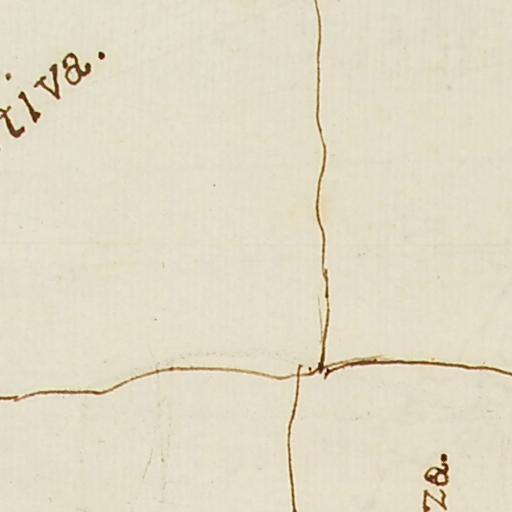 tiva.
za.